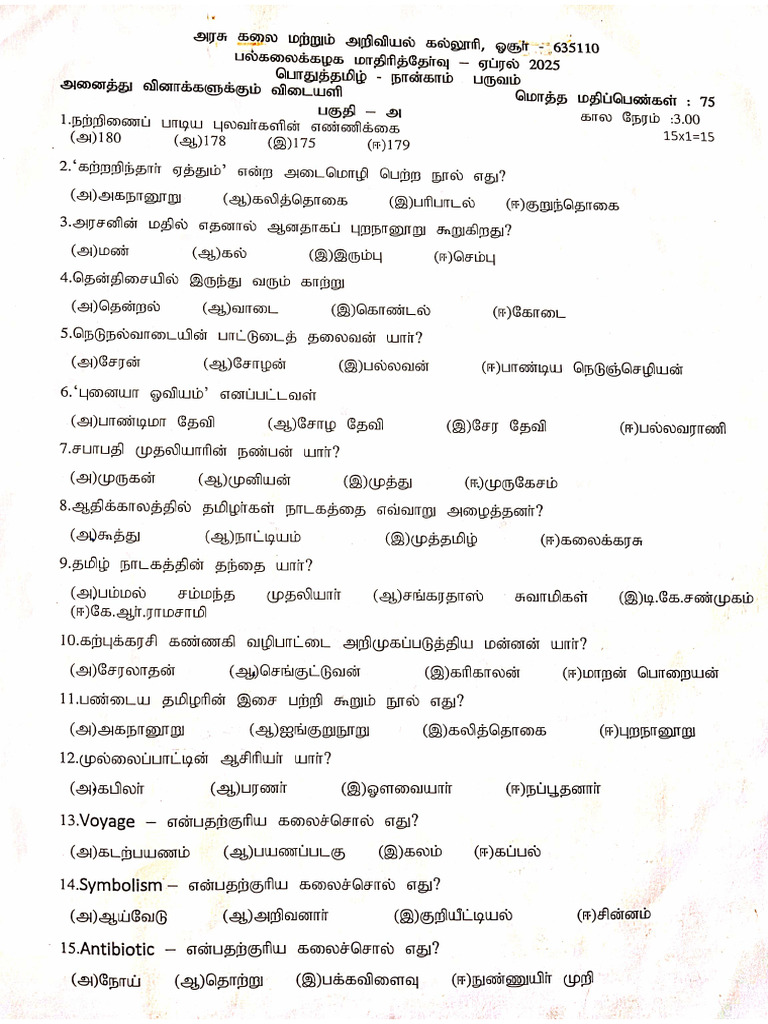 அரசு கலை மற்றும் அறிவியல் கல்லூரி, ஓசூர் - 635110
பல்கலைக்கழக மாதிரித்தேர்வு – ஏப்ரல் 2025
பொதுத்தமிழ் - நான்காம் பருவம்
அனைத்து வினாக்களுக்கும் விடையளி மொத்த மதிப்பெண்கள் : 75
பகுதி – அ கால நேரம் :3.00
1.நற்றிணைப் பாடிய புலவர்களின் எண்ணிக்கை 15x1=15
(அ)180 (ஆ)178 (இ)175 (ஈ)179
2.‘கற்றறிந்தார் ஏத்தும்’ என்ற அடைமொழி பெற்ற நூல் எது?
(அ)அகநானூறு (ஆ)கலித்தொகை (இ)பரிபாடல் (ஈ)குறுந்தொகை
3.அரசனின் மதில் எதனால் ஆனதாகப் புறநானூறு கூறுகிறது?
(அ)மண் (ஆ)கல் (இ)இரும்பு (ஈ)செம்பு
4.தென்திசையில் இருந்து வரும் காற்று
(அ)தென்றல் (ஆ)வாடை (இ)கொண்டல் (ஈ)கோடை
5.நெடுநல்வாடையின் பாட்டுடைத் தலைவன் யார்?
(அ)சேரன் (ஆ)சோழன் (இ)பல்லவன் (ஈ)பாண்டிய நெடுஞ்செழியன்
6.‘புனையா ஓவியம்’ எனப்பட்டவள்
(அ)பாண்டிமா தேவி (ஆ)சோழ தேவி (இ)சேர தேவி (ஈ)பல்லவராணி
7.சபாபதி முதலியாரின் நண்பன் யார்?
(அ)முருகன் (ஆ)முனியன் (இ)முத்து (ஈ)முருகேசம்
8.ஆதிக்காலத்தில் தமிழர்கள் நாடகத்தை எவ்வாறு அழைத்தனர்?
(அ)கூத்து (ஆ)நாட்டியம் (இ)முத்தமிழ் (ஈ)கலைக்கரசு
9.தமிழ் நாடகத்தின் தந்தை யார்?
(அ)பம்மல் சம்மந்த முதலியார் (ஆ)சங்கரதாஸ் சுவாமிகள் (இ)டி.கே.சண்முகம்
(ஈ)கே.ஆர்.ராமசாமி
10.கற்புக்கரசி கண்ணகி வழிபாட்டை அறிமுகப்படுத்திய மன்னன் யார்?
(அ)சேரலாதன் (ஆ)செங்குட்டுவன் (இ)கரிகாலன் (ஈ)மாறன் பொறையன்
11.பண்டைய தமிழரின் இசை பற்றி கூறும் நூல் எது?
(அ)அகநானூறு (ஆ)ஐங்குறுநூறு (இ)கலித்தொகை (ஈ)புறநானூறு
12.முல்லைப்பாட்டின் ஆசிரியர் யார்?
(அ)கபிலர் (ஆ)பரணர் (இ)ஔவையார் (ஈ)நப்பூதனார்
13.Voyage – என்பதற்குரிய கலைச்சொல் எது?
(அ)கடற்பயணம் (ஆ)பயணப்படகு (இ)கலம் (ஈ)கப்பல்
14.Symbolism – என்பதற்குரிய கலைச்சொல் எது?
(அ)ஆய்வேடு (ஆ)அறிவனார் (இ)குறியீட்டியல் (ஈ)சின்னம்
15.Antibiotic – என்பதற்குரிய கலைச்சொல் எது?
(அ)நோய் (ஆ)தொற்று (இ)பக்கவிளைவு (ஈ)நுண்ணுயிர் முறி